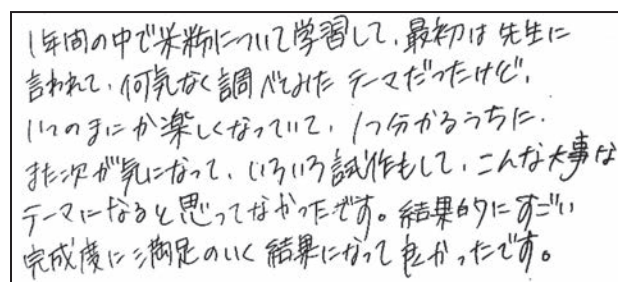 1年間の中で米粉について学習して、最初は先生に
言われて、何気なく調べてみたテーマだったけど、
いつのまにか楽しくなっていて、1つ分かるうちに、
また次が気になって、いろいろ試作もして、こんな大事な
テーマになると思ってなかったです。結果的にすごい
完成度に満足のいく結果になって良かったです。